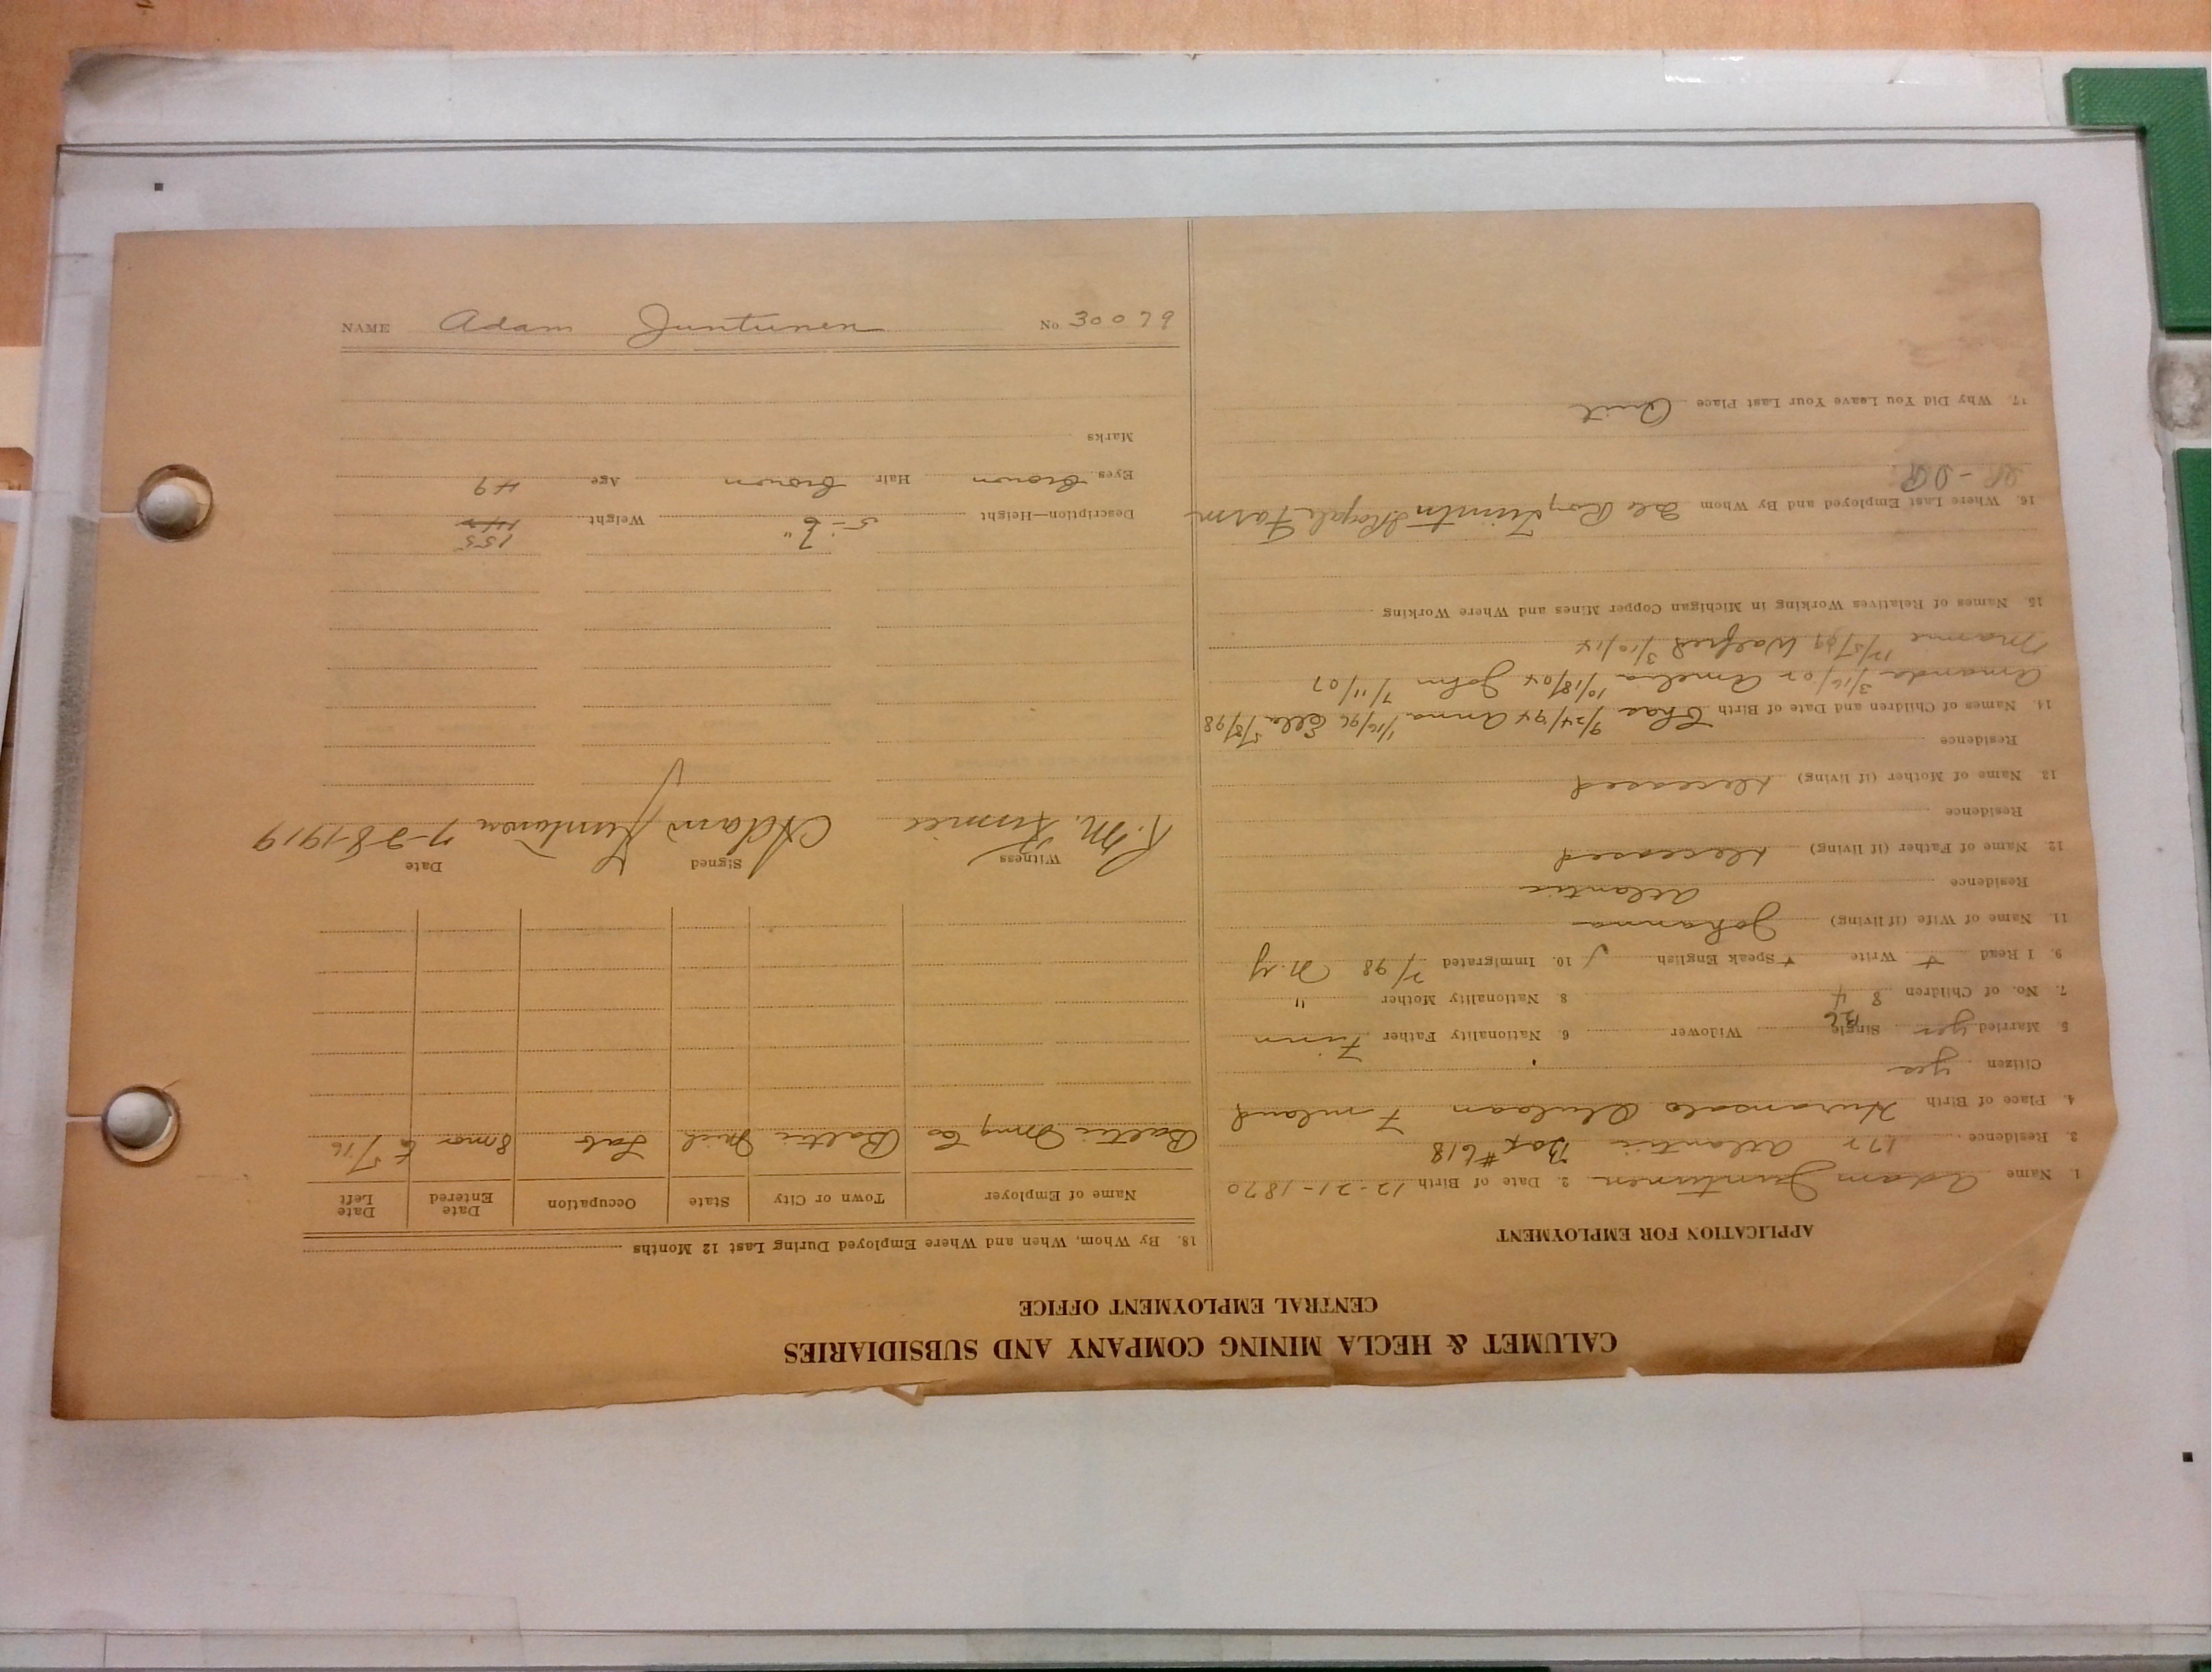 CALUMET & HECLA MINING COMPANY AND SUBSIDIARIES
CENTRAL EMPLOYMENT OFFICE
APPLICATION FOR EMPLOYMENT
1. Name Adam Juntunen 2. Date of Birth 12-21-1870
3. Residence Atlantic Box #618
4. Place of Birth Finland
Citizen yes
5. Married yes Single Widower 6. Nationality Father Finn
7. No. of Children 8 8 Nationality Mother "
9. I Read Write Speak English 10. Immigrated 7/98 N.Y
11. Name of Wife (if living) Johanna
Residence Atlantic
12. Name of Father (if living) Deceased
Residence
13. Name of Mother (if living) Deceased
Residence
14. Names of Children and Date of Birth Chas 9/24/94 Anna 1/16/96 Ella 5/8/98
Amanda 3/16/02 Amelia 10/18/04 John 7/11/07
Mamie 12/5/09 Walfred 3/10/14
15. Names of Relatives Working in Michigan Copper Mines and Where Working
16. Where Last Employed and By Whom Isle Royale Farm
17. Why Did You Leave Your Last Place Quit
18. By Whom, When and Where Employed During Last 12 Months
Name of Employer Town or City State Occupation Date Entered Date Left
Baltic Mng Co Baltic Mich Lab 8 mos 7/16
Witness Signed Date
Adam Juntunen 7-28-1919
Description—Height 5-6" Weight 155
Eyes Brown Hair Brown Age 49
Marks
NAME Adam Juntunen No. 30079